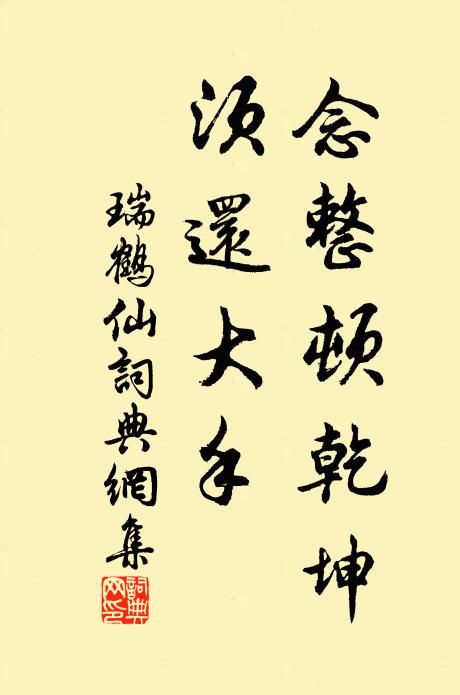 念整頓乾坤
須還大手
瑞鶴仙詞典網集
詞典网印